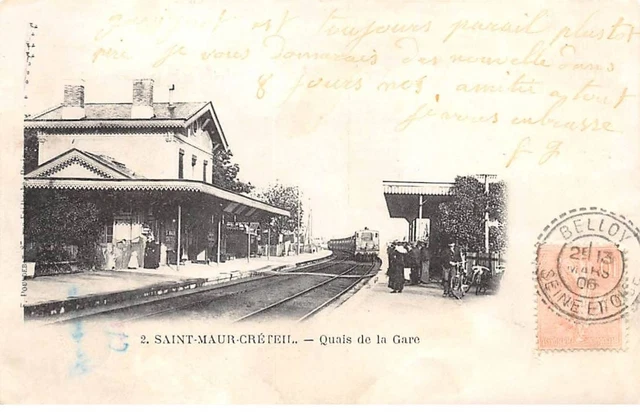 toujours pareil plustot
pire je vous donnerais des nouvelle dans
8 jours nos amitié a tout
embrasse
2. SAINT-MAUR-CRÉTEIL. — Quais de la Gare
BELLOY
MARS
06
SEINE ET OISE